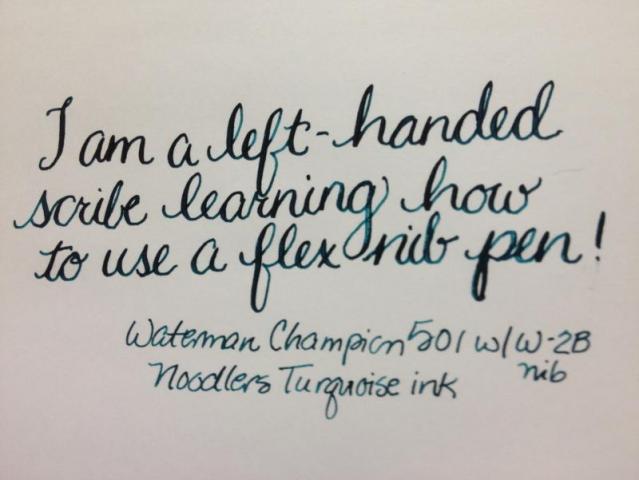 I am a left-handed
scribe learning how
to use a flex nib pen!
Waterman Champion 501 w/W-2B
nib
Noodlers Turquoise ink